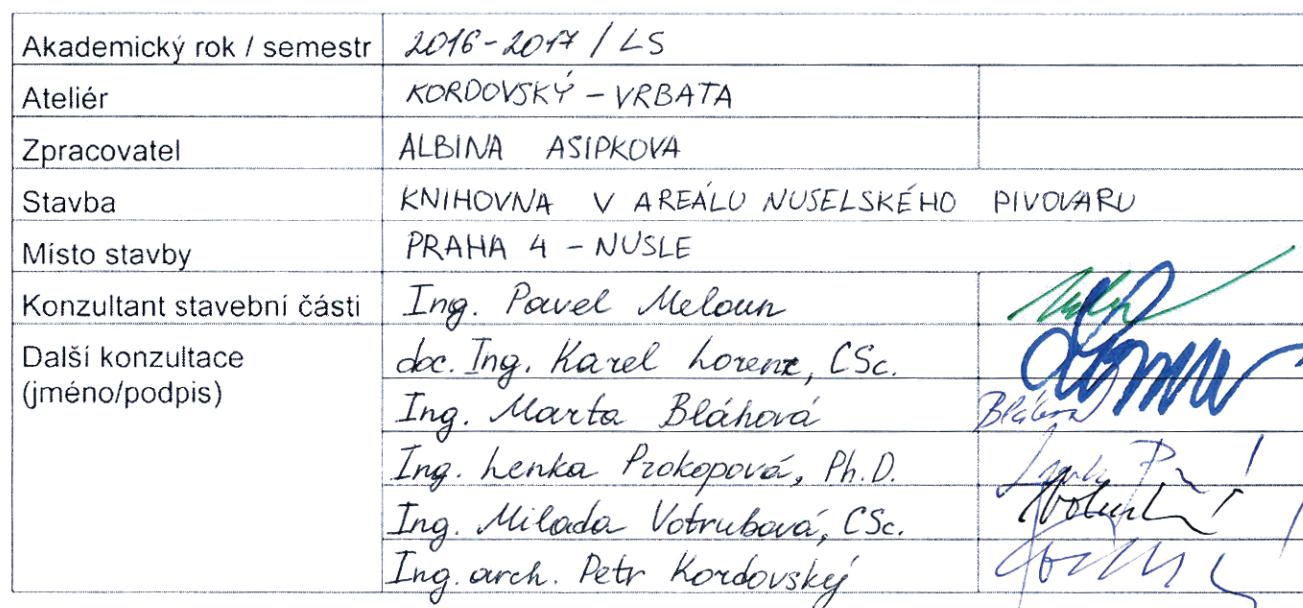 Akademický rok / semestr 2016-2017 / LS
Ateliér KORDOVSKÝ – VRBATA
Zpracovatel ALBINA ASIPKOVA
Stavba KNIHOVNA V AREÁLU NUSELSKÉHO PIVOVARU
Místo stavby PRAHA 4 – NUSLE
Konzultant stavební části Ing. Pavel Meloun
Další konzultace doc. Ing. Karel Lorenz, CSc.
(jméno/podpis)
Ing. Marta Bláhová
Ing. Lenka Prokopová, Ph.D.
Ing. Milada Votrubová, CSc.
Ing. arch. Petr Kordovský